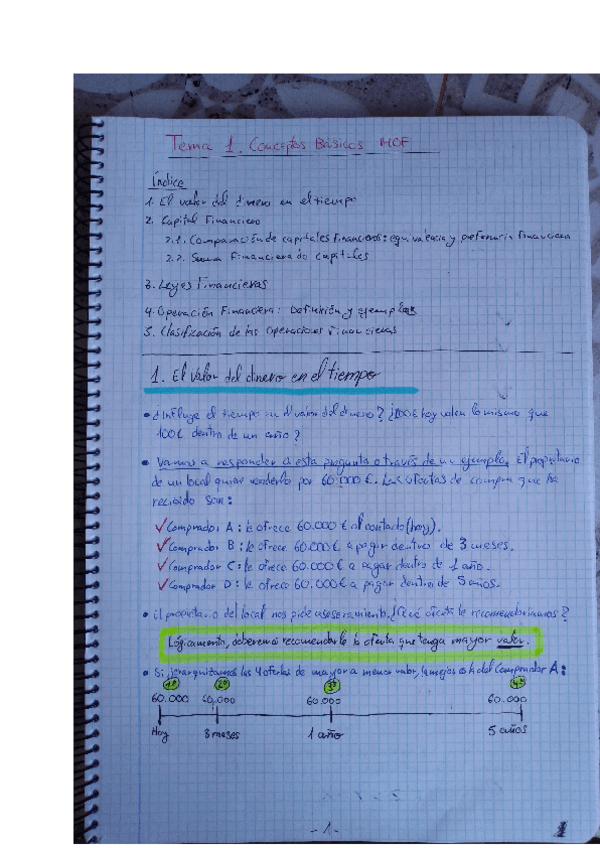 Tema 1. Conceptos Básicos MOF
Índice
1. El valor del dinero en el tiempo
2. Capital Financiero
2.1. Comparación de capitales financieros: equivalencia y preferencia financiera
2.2. Suma Financiera de capitales
3. Leyes Financieras
4. Operación Financiera: Definición y ejemplos
5. Clasificación de las Operaciones Financieras
1. El valor del dinero en el tiempo
• ¿Influye el tiempo en el valor del dinero? ¿100€ hoy valen lo mismo que
100€ dentro de un año?
• Vamos a responder a esta pregunta a través de un ejemplo. El propietario
de un local quiere venderlo por 60.000€. Las ofertas de compra que ha
recibido son:
✓ Comprador A: le ofrece 60.000€ al contado (hoy).
✓ Comprador B: le ofrece 60.000€ a pagar dentro de 3 meses.
✓ Comprador C: le ofrece 60.000€ a pagar dentro de 1 año.
✓ Comprador D: le ofrece 60.000€ a pagar dentro de 5 años.
• El propietario del local nos pide asesoramiento. ¿Qué oferta le recomendaríamos?
Lógicamente, deberemos recomendarle la oferta que tenga mayor valor.
• Si jerarquizamos las 4 ofertas de mayor a menor valor, la mejor es la del Comprador A:
1º 2º 3º 4º
60.000 60.000 60.000 60.000
Hoy 3 meses 1 año 5 años
- 1 -
1